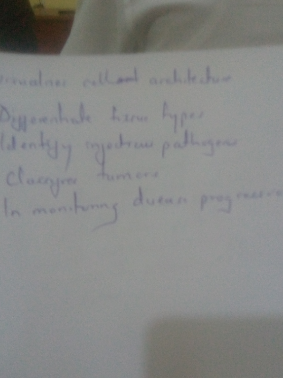 visualizes cellular architecture
Differentiate tissue types
Identify infectious pathogens
Classifies tumors
In monitoring disease progression